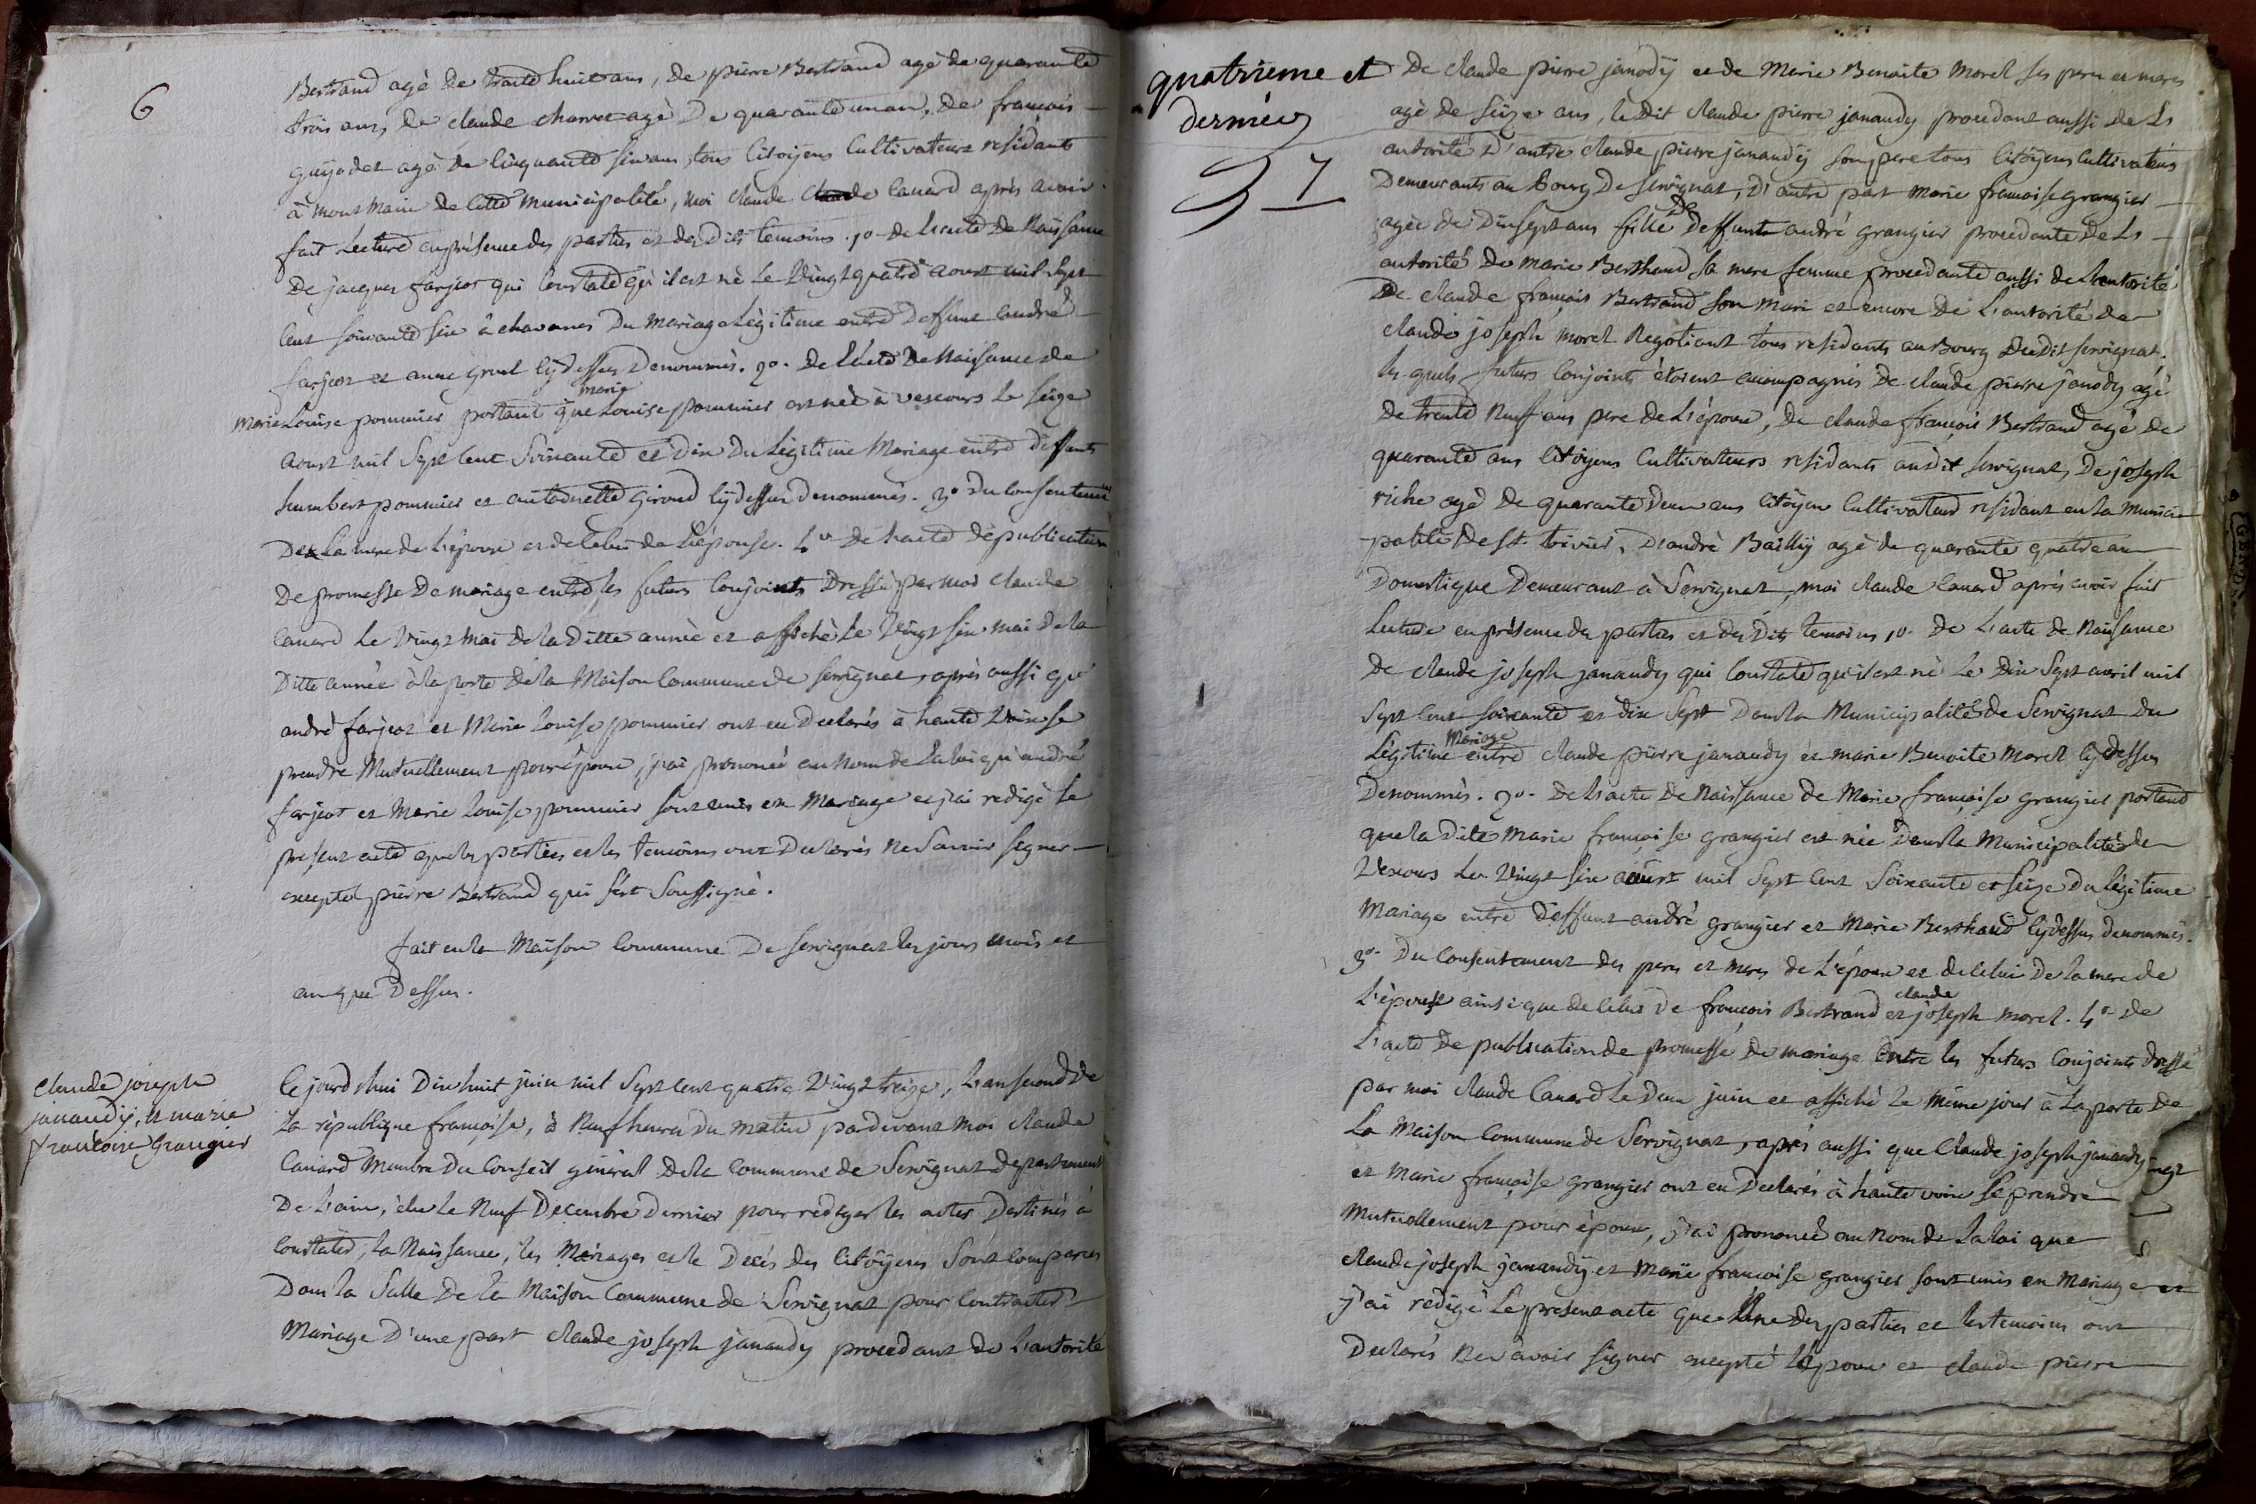 6
Bertrand agé de trante huit ans, de pierre Bertrand agé de quarante
trois ans, de claude charvet agé De quarante un an, De francois
guyodet agé de cinquante six ans, tous Citoyens Cultivateurs residants
à mont Main de cette municipalité, moi claude Canard après avoir
fait Lecture en présence des parties et des Dits temoins. 1o- de L'acte de Naissance
De jacques farjeot qui Constate qu'il est né Le Vingt quatre aoust mil sept
Cent soixante six à chavanes Du mariage Légitime entre Deffunt andré
farjeot et anne gruel cydessus Denommés. 2o. de L'acte de Naissance de
marie
Marie Louise pommier portant que Louise pommier est née à vescours Le seize
aoust mil Sept Cent Soixante et Dix Du Légitime Mariage entre deffunts
humbert pommier et antoinette giroud cydessus denommés. 3o Du Consentement
De La mere de L'époux et de Celui de L'épouse. 4o De L'acte dé publication
De promesse De mariage entre les futurs Conjoints Dressé par moi claude
Canard Le Vingt mai de la Ditte année et affiché Le Vingt six mai de la
Ditte année à la porte de la Maison Commune de servignat, après aussi que
andré farjeot et Marie Louise pommier ont eu Declarés à haute Voix se
prendre Mutuellement pour époux, j'ai prononcé au Nom de La loi qu'andré
farjeot et Marie Louise pommier sont unis en Mariage et j'ai redigé Le
present acte que les parties et les temoins ont Declarés ne Savoir signer
excepté pierre Bertrand qui s'est Soussigné.
fait en la Maison Commune De servignat les jours mois et
an que Dessus.
Claude joseph
janaudy, et marie
francoise Grangier
Cejourd'hui Dixhuit juin mil Sept Cent quatre Vingt treize, L'an second de
La république françoise, à Neuf heures Du matin pardevant Moi claude
Canard Membre Du Conseil général De la Commune de Servignat département
De L'ain, élu Le Neuf Decembre Dernier pour rédiger les actes Destinés à
Constater, la Naissance, les Mariages et le Décès des Citoyens Sont comparus
Dans la Salle De la Maison Commune de Servignat pour Contracter
Mariage D'une part claude joseph janaudy procedant de L'autorité
quatrieme et
dernier
7
De claude pierre janody et de Marie Benoite Morel ses pere et mere
agé de seize ans, le dit claude pierre janaudy procedant aussi de L'
autorité D'autre claude pierre janaudy son pere tous citoyens Cultivateurs
Demeurants au Bourg De servignat, D'autre part marie francoise grangier
agée de Dixsept ans fille De Deffunt andré grangier procedante de L'
autorité de marie Berthaud sa mere femme procedante aussi de L'autorité
De claude francois Bertrand son Mari et encore de L'autorité de
claude joseph morel Negotiant tous residants au Bourg Du Dit servignat.
les quels futurs Conjoints étoient accompagnés de claude pierre janody agé
de trente Neuf ans pere de L'époux, de claude françois Bertrand agé de
quarante ans Citoyens Cultivateurs residants au dit servignat, de joseph
riche agé de quarante Deux ans Citoyen Cultivateur residant en la munici
palité De St trivier, D'andré Bailly agé de quarante quatre ans
Domestique Demeurant à Servignat, moi claude Canard après avoir fait
Lecture en présence des parties et des Dits temoins, 1o. De L'acte de Naissance
De claude joseph janaudy qui Constate qu'il est né Le Dix Sept avril mil
Sept Cent soixante et dix Sept Dans la Municipalité de Servignat du
Mariage
Légitime entre claude pierre janaudy et marie Benoite Morel cydessus
Denommés. 2o. De L'acte De Naissance de Marie françoise grangier portant
que la Dite Marie francoise grangier est née Dans la Municipalité de
Vescours Le Vingt six aoust mil Sept Cent Soixante et seize Du Légitime
Mariage entre Deffunt andré grangier et Marie Berthaud cydessus denommés.
3o. Du Consentement des pere et mere de L'époux et de celui De la mere de
claude
L'épouse ainsi que de celui De francois Bertrand et joseph morel. 4o De
L'acte De publication de promesse de mariage Entre les futurs Conjoints dressé
par moi claude Canard Le Deux juin et affiché Le même jour à La porte De
La Maison Commune de Servignat, après aussi que Claude joseph janaudy
et Marie françoise grangier ont eu Declarés à haute voix se prendre
Mutuellement pour époux, j'ai prononcé au Nom de La loi que
claude joseph janaudy et Marie francoise grangier sont unis en Mariage et
j'ai redigé Le present acte que L'une des parties et les temoins ont
Declarés Ne savoir signer excepté L'époux et claude pierre